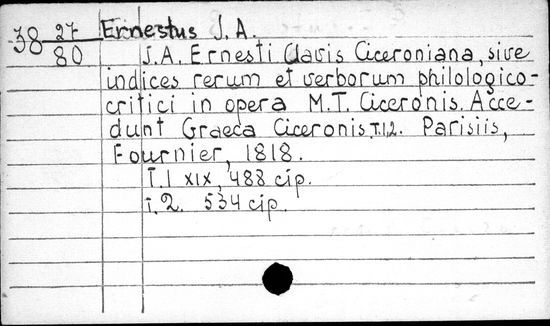 38 27/80 Ernestus J. A.
J. A. Ernesti Clavis Ciceroniana, sive
indices rerum et verborum philologico-
critici in opera M. T. Ciceronis. Acce-
dunt Graeca Ciceronis. T.1,2. Parisiis,
Fournier, 1818.
T.1 XIX, 488 cip.
T.2. 534 cip.